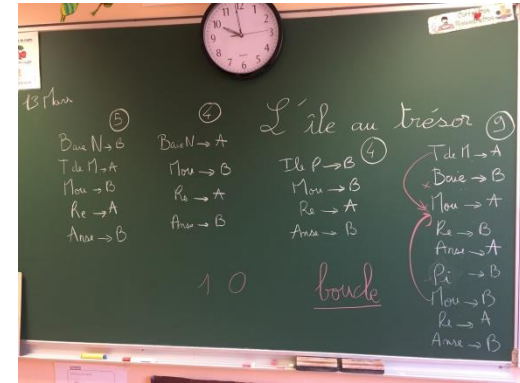 13 Mars
L'île au trésor
⑤
Baie N → B
T de M → A
Mou → B
Re → A
Anse → B
④
Baie N → A
Mou → B
Re → A
Anse → B
④
Ile P → B
Mou → B
Re → A
Anse → B
⑨
T de M → A
Baie → B
Mou → A
Re → B
Anse → A
Pi → B
Mou → B
Re → A
Anse → B
1 0
boucle